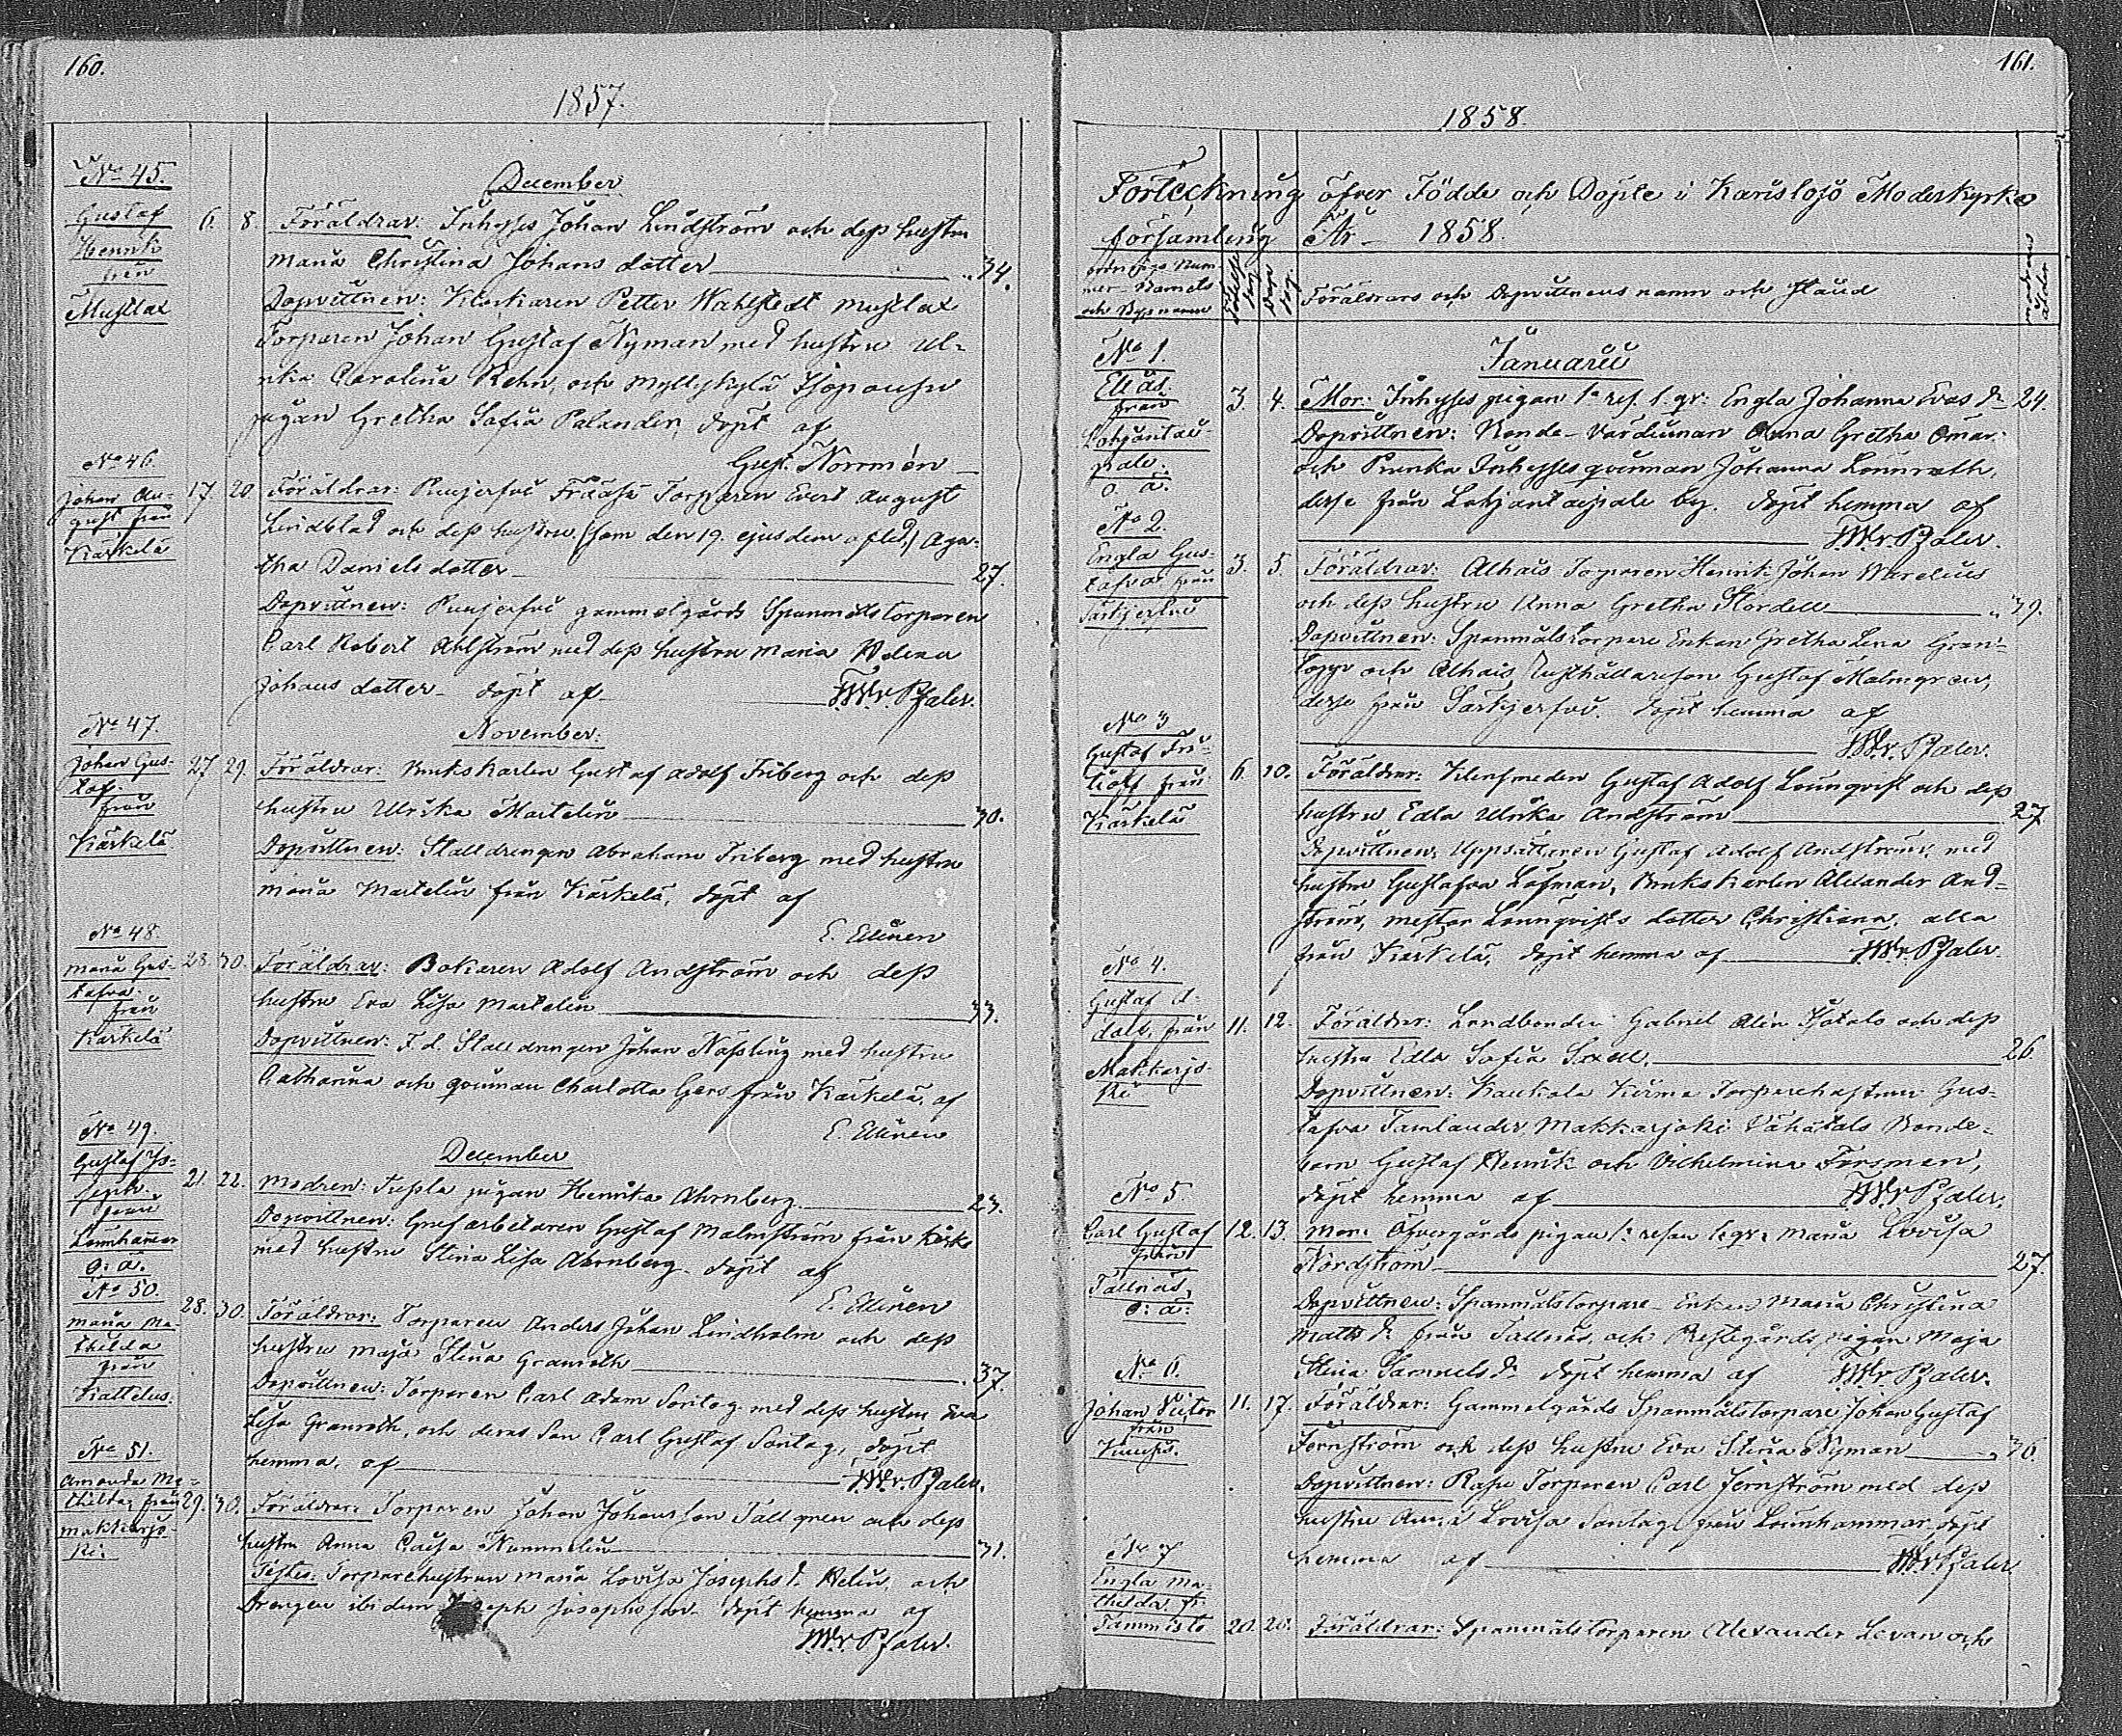 160.
1857.
No 45.
Gustaf
Henrik
från
Mustlax
6. 8.
December
Föräldrar: Inhyses Johan Lindström och dess hustru
Maria Christina Johans dotter 34.
Dopvittnen: Klockaren Petter Wahlstedt Mustlax
Torparen Johan Gustaf Nyman med hustru Ul-
rika Carolina Rehn, och Myllykylä
pigan Gretha Sofia Palander, döpt af
Gust. Norrmén
No 46.
Johan Au-
gust från
Kärkelä
17. 20.
Föräldrar: Puujerfvi Torparen Evert August
Lindblad och dess hustru, (som den 19. ejusdem afled,) Aga-
tha Daniels dotter 27.
Dopvittnen: Puujerfvi gammelgårds Spanmålstorparen
Carl Robert Ahlström med dess hustru Maria Helena
Johans dotter döpt af F.W.v.Pfaler.
No 47.
Johan Gus-
taf.
från
Kärkelä
27 29.
November.
Föräldrar: Brukskarlen Gustaf Adolf Friberg och dess
hustru Ulrika Martelin 30.
Dopvittnen: Stalldrengen Abraham Friberg med hustru
Maria Martelin från Kärkelä, döpt af
E. Ellinen
No 48.
Maria Gus-
tafva
från
Kärkelä
28. 30.
Föräldrar: Bokaren Adolf Andström och dess
hustru Eva Lisa Martelin 33.
Dopvittnen: F.d. Stalldrengen Johan Nassling med hustru
Catharina och qvinnan Charlotta Gers från Kärkelä, af
E. Ellinen
No 49.
Gustaf Jo-
seph.
från
Lönnhammar
o. ä.
21. 22.
December
Modren: pigan Henrika Ahrnberg 23.
Dopvittnen: Grufarbetaren Gustaf Malmström från
med hustru Stina Lisa Ahrnberg döpt af
E. Ellinen
No 50.
Maria Ma-
thilda
från
Kattelus.
28. 30.
Föräldrar: Torparen Anders Johan Lindholm och dess
hustru Maja Stina Granroth 37.
Dopvittnen: Torparen Carl Adam Sontag med dess hustru Eva
Lisa Granroth, och deras Son Carl Gustaf Sontag, döpt
hemma, af F.W.v.Pfaler.
No 51.
Amanda Ma-
thilda, från
Makkarjo-
ki.
29. 30.
Föräldrar: Torparen Johan Johansson Tallgren och dess
hustru Anna Caisa Nummelin 31.
Testes: Torparehustrun Maria Lovisa Josephs d. Helin, och
Drengen ibidem Joseph Josephsson döpt hemma af
F.W.v.Pfaler.
161.
1858.
Förteckning öfver Födde och Döpte i Karislojo Moderkyrko
församling År 1858.
och Bynamn
Födelse dag.
Dop dag.
Föräldrars och Dopvittnens namn och Stånd
modrens ålder
No 1.
Elias.
från
Lohjantai-
pale.
o. ä.
3. 4.
Januarii
Mor: Inhyses pigan 1a res. l. qr: Engla Johanna Evas dr 24.
Dopvittnen: Bonde-Värdinnan Anna Gretha Omar
och Inhyses qvinnan Johanna Lönnroth,
desse från Lohjantaipale by. döpt hemma af
F.W.v.Pfaler.
No 2.
Engla Gus-
tafva från
Särkjerfvi
3. 5.
Föräldrar: Alhais Torparen Henrik Johan Marelius
och dess hustru Anna Gretha Stordell 39.
Dopvittnen: Spanmåls torpare Enkan Gretha Lena Gran-
topp och Alhais Rusthållareson Gustaf Malmgren,
desse från Särkjerfvi. döpt hemma af
F.W.v.Pfaler.
No 3
Gustaf Fri-
tiolf från
Kärkelä
6. 10.
Föräldrar: Klensmeden Gustaf Adolf Lönnqvist och dess
hustru Edla Ulrika Andström 27
Dopvittnen: Uppsättaren Gustaf Adolf Andström, med
hustru Gustafva Löfman, Brukskarlen Alexander And-
ström, mäster Lönnqvists dotter Christiana, alla
från Kärkelä, döpt hemma af F.W.v.Pfaler.
No 4.
Gustaf A-
dolf, från
Makkarjo-
ki
11. 12.
Föräldrar: Landbonden Gabriel Alén Isotalo och dess
hustru Edla Sofia Saxell. 26
Dopvittnen: Kaukola Torparehustrun Gus-
tafva Tamlander, Makkarjoki Vähätalo Bonde-
barn Gustaf Henrik och Vilhelmina Forsman,
döpt hemma af F.W.v.Pfaler.
No 5.
Carl Gustaf
från
Tallnäs,
o. ä.
12. 13.
Mor: Öfvergårds pigan 1: resan l: qr: Maria Lovisa
Nordström 27.
Dopvittnen: Spanmålstorpare Enkan Maria Christina
Matts dr från Tallnäs, och Prestegårds pigan Maja
Stina Samuels dr döpt hemma af F.W.v.Pfaler.
No 6.
Johan Victor
från
11. 17.
Föräldrar: Gammelgårds Spanmålstorpare Johan Gustaf
Jernström och dess hustru Eva Stina Nyman 36.
Dopvittnen: Torparen Carl Jernström med dess
hustru Anna Lovisa Sontag från Lönnhammar döpt
hemma af F.W.v.Pfaler
No 7
Engla Ma-
thilda, fr.
Tammisto
20. 20.
Föräldrar: Spanmålstorparen Alexander Levan och